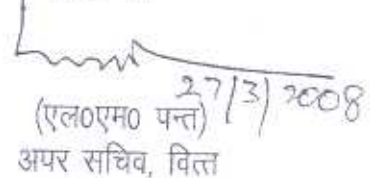 27/3/2008
(एल0एम0 पन्त)
अपर सचिव, वित्त